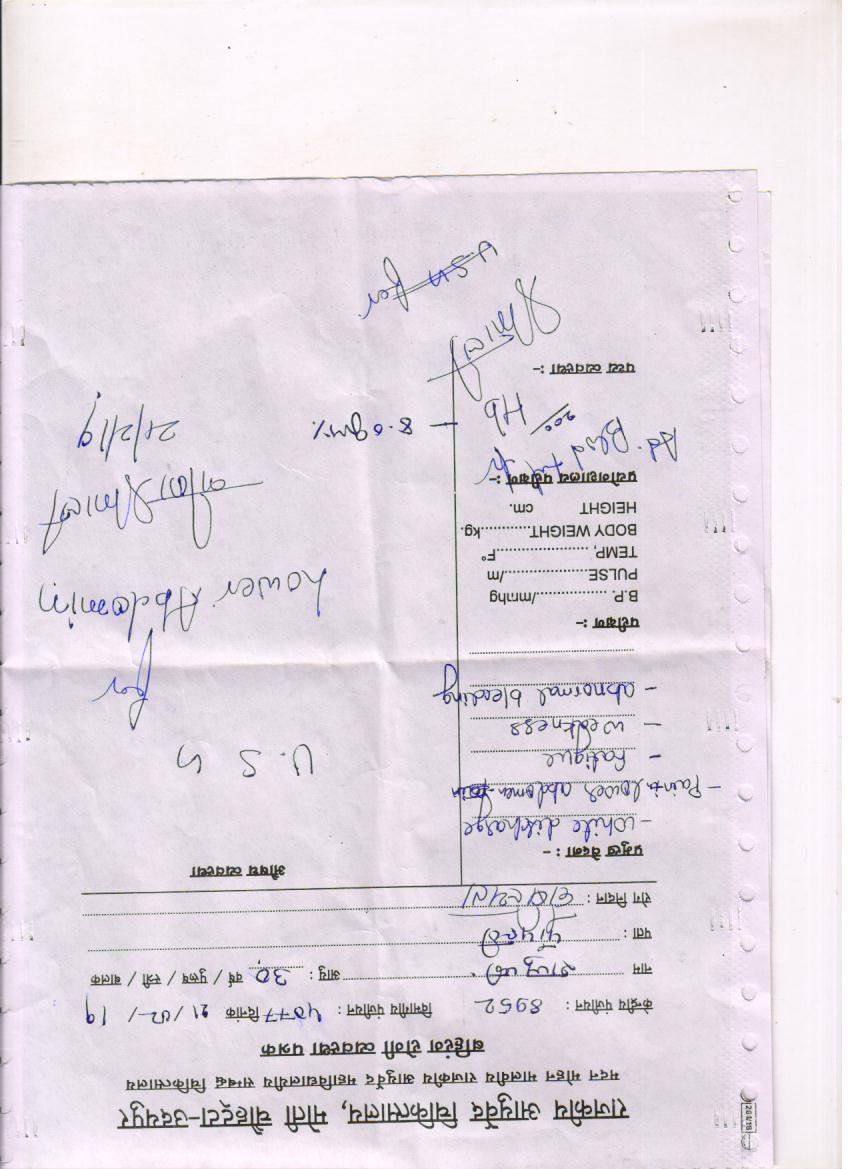 राजकीय आयुर्वेद चिकित्सालय, मोती चौहट्टा-उदयपुर
मदन मोहन मालवीय राजकीय आयुर्वेद महाविद्यालयीय सम्बद्ध चिकित्सालय
बहिरंग रोगी व्यवस्था पत्रक
केन्द्रीय पंजीयन : 8952 विभागीय पंजीयन : 4077 दिनांक 21/02/19
नाम आयु : 30 वर्ष / पुरुष / स्त्री / बालक
पता :
रोग निदान :
प्रमुख वेदना : -
औषध व्यवस्था
- White discharge
- Pain in lower abdomen
- Fatigue
- Weakness
- abnormal bleeding
U.S.G
for
Lower Abdomin
21/2/19
परीक्षण :-
B.P. /mmhg
PULSE /m
TEMP, F°
BODY WEIGHT kg.
HEIGHT cm.
प्रयोगशालय परीक्षण :-
Ad. Blood
Hb - 8.0 gm%
पथ्य व्यवस्था :-
U.S.G for